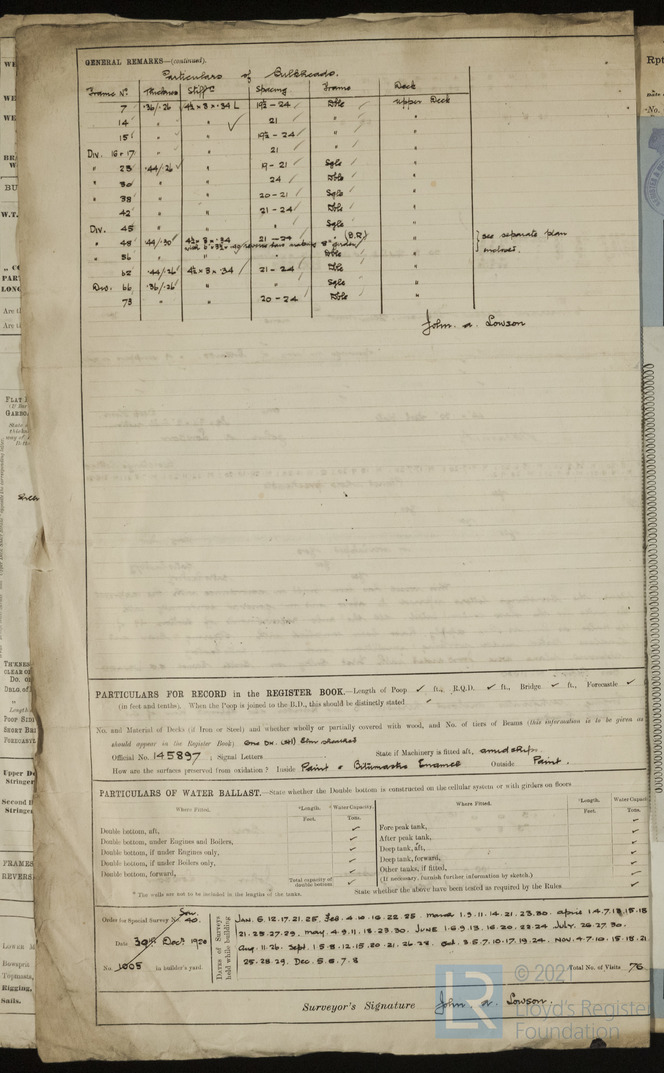 GENERAL REMARKS—(continued).
Particulars of Bulkheads.
Frame No. Thickness Stiffrs Spacing Frame Deck
7 .36/.26 4½ × 3 × .34 L 19½ – 24 Dble upper Deck
14 " " 21 " "
15 " " 19½ – 24 " "
Div. 16 & 17 " " 21 " "
" 23 .44/.26 " 19 – 21 Sgle "
" 30 " " 24 Dble "
" 38 " " 20 – 21 Sgle "
42 " " 21 – 24 Dble "
Div. 45 " " " Sgle "
" 48 .44/.30 4½ × 3 × .34 21 – 24 " (B.R.) " see separate plan
enclosed.
" 56 Dble "
62 .44/.26 4½ × 3 × .34 21 – 24 Dble "
Div. 66 .36/.26 " " Sgle "
73 " " 20 – 24 Dble "
John. A. Lowson
PARTICULARS FOR RECORD in the REGISTER BOOK.—Length of Poop ft., R.Q.D. ft., Bridge ft., Forecastle
(in feet and tenths). When the Poop is joined to the B.D., this should be distinctly stated
No. and Material of Decks (if Iron or Steel) and whether wholly or partially covered with wood, and No. of tiers of Beams (this information is to be given as
should appear in the Register Book) One Dk. (stl)
Official No. 145897, Signal Letters State if Machinery is fitted aft, amidships.
How are the surfaces preserved from oxidation? Inside Paint & Bitumastic Enamel Outside Paint.
PARTICULARS OF WATER BALLAST.—State whether the Double bottom is constructed on the cellular system or with girders on floors
Where Fitted. *Length. Water Capacity. Where Fitted. *Length. Water Capaci
Feet. Tons. Feet. Tons.
Double bottom, aft, Fore peak tank,
Double bottom, under Engines and Boilers, After peak tank,
Double bottom, if under Engines only, Deep tank, aft,
Double bottom, if under Boilers only, Deep tank, forward,
Double bottom, forward, Other tanks, if fitted,
Total capacity of double bottom (If necessary, furnish further information by sketch.)
* The wells are not to be included in the lengths of the tanks. State whether the above have been tested as required by the Rules
Order for Special Survey No. 40.
Date 30th Decr. 1920
No. 1005 in builder's yard.
DATES of Surveys held while building
Jan. 6. 12. 17. 21. 25. Feb. 4. 10. 16. 22. 25. march 1. 9. 11. 14. 21. 23. 30. april 1. 4. 7. 13. 15. 18
21. 25. 27. 29. may. 4. 9. 11. 18. 23. 30. JUNE 1. 6. 9. 13. 16. 20. 22. 24 July. 26. 27. 30.
Aug. 11. 26. Sept. 1. 5. 8. 12. 15. 20. 21. 26. 28. Oct. 3. 5. 7. 10. 17. 19. 24. Nov. 4. 7. 10. 15. 18. 21.
25. 28. 29. Dec. 5. 6. 7. 8
Total No. of Visits 76
Surveyor's Signature John. A. Lowson.
© 2021
Lloyd's Register
Foundation
LR